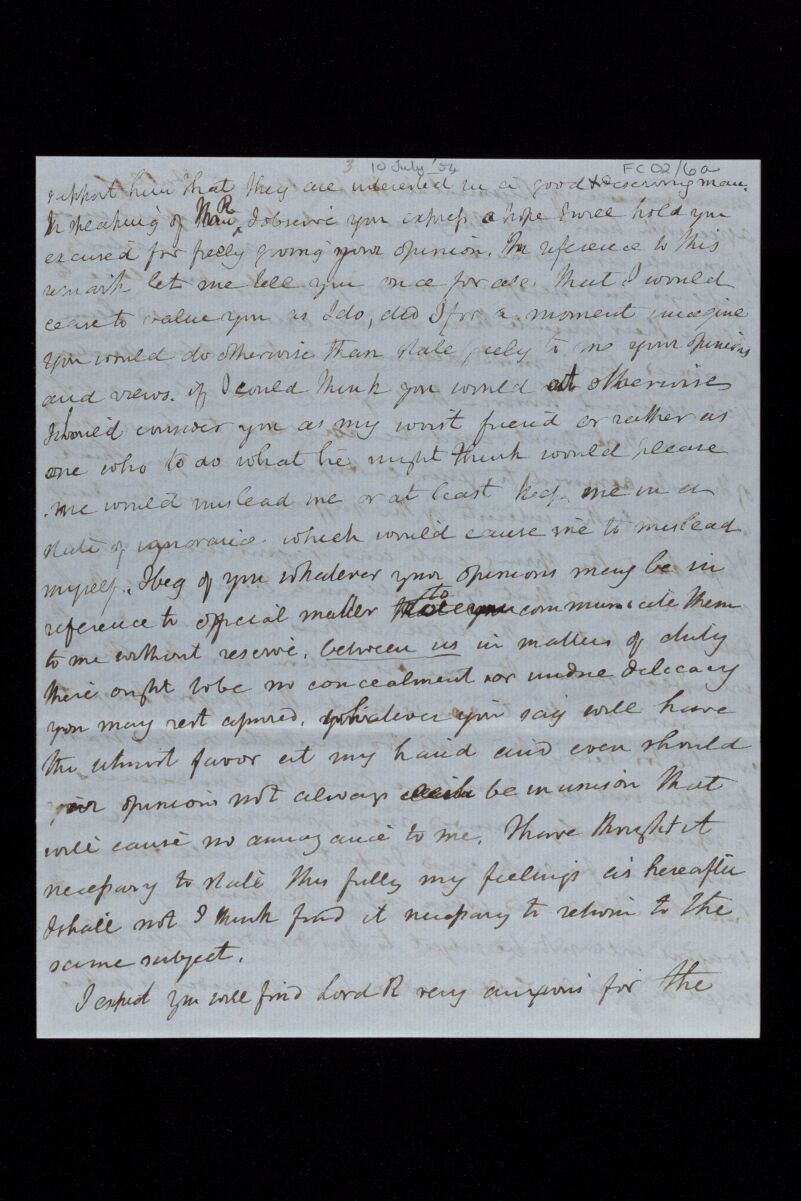 3 10 July '54 FC02/6a
support him that they are interested in a good & deserving man.
In speaking of R I observe you express a hope I will hold you
excused for freely giving your opinion. In reference to this
remark let me tell you once for all. That I would
cease to value you as I do, did I for a moment imagine
you would do otherwise than state freely to me your opinions
and views. if I could think you would act otherwise
I should consider you as my worst friend or rather as
one who to do what he might think would please
me would mislead me or at least keep me in a
state of ignorance which would cause me to mislead
myself. I beg of you whatever your opinions may be in
reference to official matter to communicate them
to me without reserve, between us in matters of duty
there ought to be no concealment nor undue delicacy
you may rest assured, whatever you say will have
the utmost favor at my hand and even should
our opinions not always be in unison that
will cause no annoyance to me. I have thought it
necessary to state this fully my feelings as hereafter
I shall not I think find it necessary to return to the
same subject.
I expect you will find Lord R very anxious for the